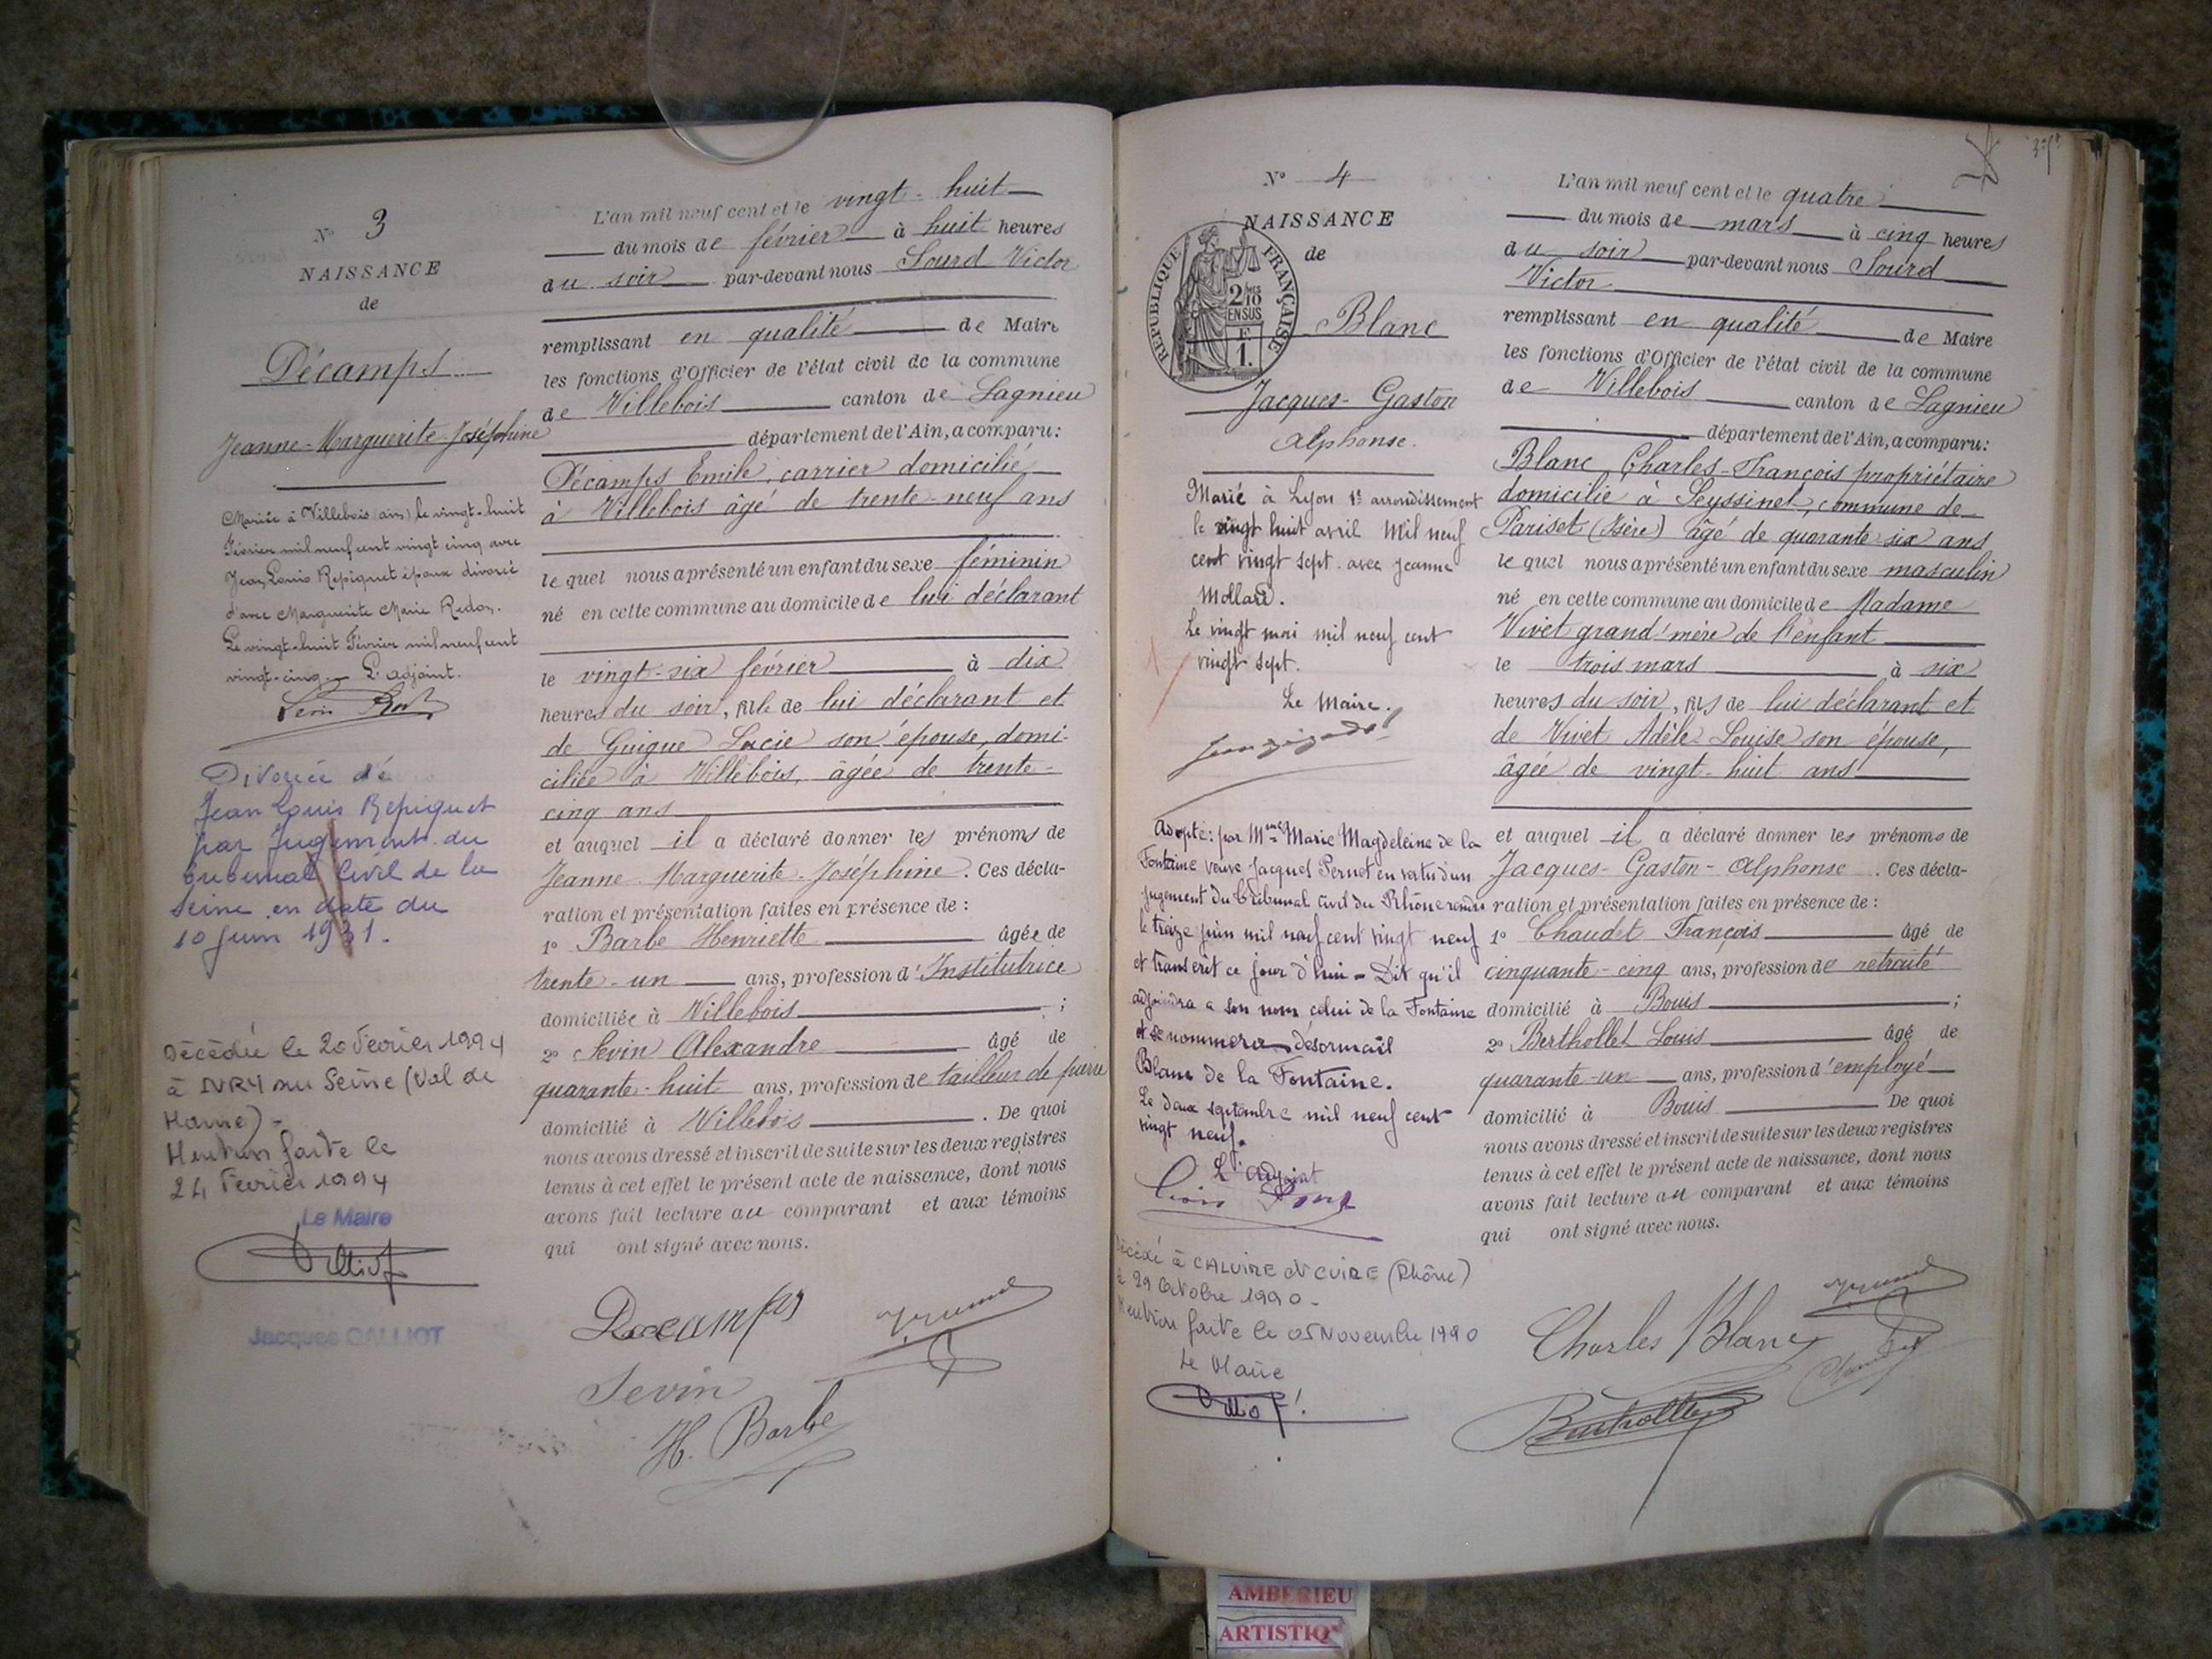 N° 3
NAISSANCE
de
Décamps
Jeanne-Marguerite-Joséphine
Mariée à Villebois (ain) le vingt-huit
Février mil neuf cent vingt cinq avec
Jean Louis Repiquet époux divorcé
d'avec Marguerite Marie Redon.
Le vingt-huit Février mil neuf cent
vingt-cinq. L'adjoint.
Divorcée de
Jean Louis Repiquet
par Jugement du
tribunal Civil de la
Seine en date du
10 Juin 1931.
Décédée le 20 Février 1994
à IVRY sur Seine (Val de
Marne) -
Mention faite le
24 Février 1994
Le Maire
Jacques GALLIOT
L'an mil neuf cent et le vingt-huit
du mois de février à huit heures
du soir par-devant nous Sourd Victor
remplissant en qualité de Maire
les fonctions d'Officier de l'état civil de la commune
de Villebois canton de Lagnieu
département de l'Ain, a comparu:
Décamps Emile, carrier domicilié
à Villebois âgé de trente-neuf ans
le quel nous a présenté un enfant du sexe féminin
né en cette commune au domicile de lui déclarant
le vingt-six février à dix
heures du soir, fille de lui déclarant et
de Guigue Lucie son épouse, domi-
ciliée à Villebois, âgée de trente-
cinq ans
et auquel il a déclaré donner les prénoms de
Jeanne-Marguerite-Joséphine. Ces décla-
ration et présentation faites en présence de :
1° Barbe Henriette âgée de
trente-un ans, profession d'Institutrice
domiciliée à Villebois ;
2° Sevin Alexandre âgé de
quarante-huit ans, profession de tailleur de pierre
domicilié à Villebois . De quoi
nous avons dressé et inscrit de suite sur les deux registres
tenus à cet effet le présent acte de naissance, dont nous
avons fait lecture au comparant et aux témoins
qui ont signé avec nous.
Decamps
Sevin
H. Barbe
N° 4
NAISSANCE
de
REPUBLIQUE FRANÇAISE
2/10
EN SUS
F
1.
Blanc
Jacques-Gaston
Alphonse.
Marié à Lyon 1er arrondissement
le vingt huit avril Mil neuf
cent vingt sept. avec Jeanne
Mollard.
Le vingt mai mil neuf cent
vingt sept.
Le Maire.
Adopté: par Mme Marie Magdeleine de la
Fontaine veuve Jacques Pernet en vertu d'un
jugement du Tribunal civil du Rhône rendu
le treize juin mil neuf cent vingt neuf
et transcrit ce jour d'hui - Dit qu'il
adjoindra a son nom celui de la Fontaine
et se nommera désormais
Blanc de la Fontaine.
Le deux septembre mil neuf cent
vingt neuf.
L'adjoint
Décédé à CALUIRE et CUIRE (Rhône)
le 29 Octobre 1990 -
Mention faite le 05 Novembre 1990
Le Maire
L'an mil neuf cent et le quatre
du mois de mars à cinq heures
du soir par-devant nous Sourd
Victor
remplissant en qualité de Maire
les fonctions d'Officier de l'état civil de la commune
de Villebois canton de Lagnieu
département de l'Ain, a comparu:
Blanc Charles-François propriétaire
domicilié à Seyssinet, commune de
Pariset (Isère) âgé de quarante-six ans
le quel nous a présenté un enfant du sexe masculin
né en cette commune au domicile de Madame
Vivet grand'mère de l'enfant
le trois mars à six
heures du soir, fils de lui déclarant et
de Vivet Adèle Louise son épouse,
âgée de vingt-huit ans
et auquel il a déclaré donner les prénoms de
Jacques-Gaston-Alphonse . Ces décla-
ration et présentation faites en présence de :
1° Chaudet François âgé de
cinquante-cinq ans, profession de retraité
domicilié à Bouis ;
2° Berthollet Louis âgé de
quarante-un ans, profession d'employé
domicilié à Bouis De quoi
nous avons dressé et inscrit de suite sur les deux registres
tenus à cet effet le présent acte de naissance, dont nous
avons fait lecture au comparant et aux témoins
qui ont signé avec nous.
Charles Blanc
Berthollet
AMBERIEU
ARTISTIQ